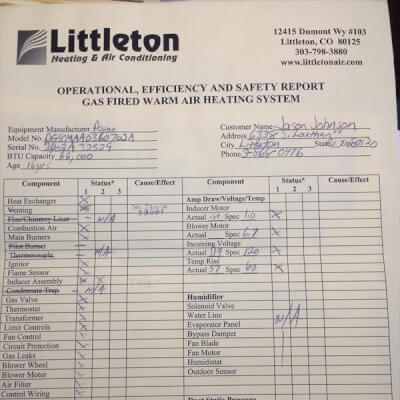 Littleton
Heating & Air Conditioning
12415 Dumont Wy #103
Littleton, CO 80125
303-798-3880
www.littletonair.com
OPERATIONAL, EFFICIENCY AND SAFETY REPORT
GAS FIRED WARM AIR HEATING SYSTEM
Equipment Manufacturer Payne
Model No.
Serial No.
BTU Capacity 66,000
Age 16yrs
Customer Name Jason Johnson
Address 6338 S.
City Littleton State Zip 80120
Phone
Component Status* Cause/Effect
1 2 3
Heat Exchanger X
Venting X
Flue/Chimney Liner N/A
Combustion Air X
Main Burners X
Pilot Burner
Thermocouple N/A
Ignitor
Flame Sensor
Inducer Assembly X X
Condensate Trap N/A
Gas Valve
Thermostat
Transformer
Limit Controls
Fan Control
Circuit Protection
Gas Leaks
Blower Wheel
Blower Motor
Air Filter
Control Wiring
Component Status* Cause/Effect
1 2 3
Amp Draw/Voltage/Temp
Inducer Motor
Actual Spec 1.0 X
Blower Motor
Actual Spec 6.9 X
Incoming Voltage
Actual 119 Spec 120 X
Temp Rise
Actual 57 Spec 60 X
Humidifier
Solenoid Valve
Water Line
Evaporator Panel N/A
Bypass Damper
Fan Blade
Fan Motor
Humidistat
Outdoor Sensor
Duct Static Pressure